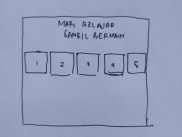 MARI BELAJAR
SAMBIL BERMAIN
1 2 3 4 5